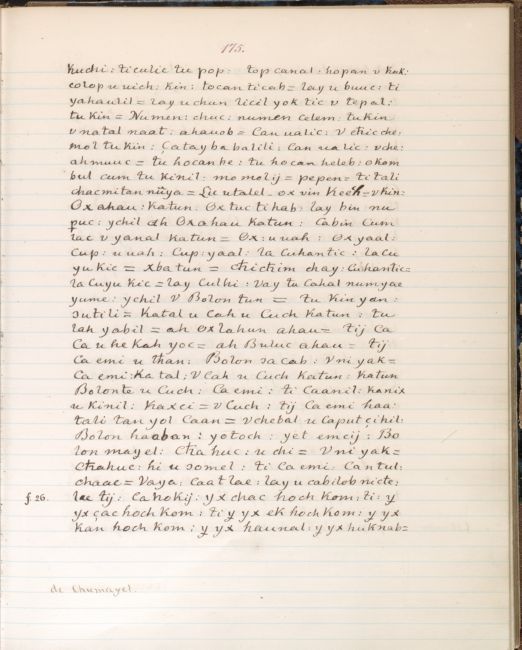 175.
kuchi: ticulic tu pop: top canal: hopan v kak:
colop u uich: kin: tocan ticab= lay u buuc: ti
yahaulil= lay uchun licil yok tic v tepal:
tu kin= Numen: chuc: numen celem: tukin
v natal naat: ahauob= Can ualic: v chicche:
mol tu kin: Çatay ba balili: can ualic: vche:
ahmuuc= tu hocan be: tu hocan heleb: okom
bul cum tu kinil: mo molij= pepen= ti tali
chacmitan nüya= Liu utalel ox vin Keeh= vkin:
Oxahau: katun: Ox tuc ti hab: lay bin nu
puc: ychil ah Oxahau Katun: Cabin Cum
lac v yanal Katun= Ox: u uah: Ox yaal:
Cup: u uah: Cup: yaal: la Cuhantic: la cu
yu kic= xbatun= chichim chay: Cuhantic=
la Cuyu kic= lay Culhi: vay tu Cahal numyae
yume: ychil v Bolon tun= tu kin yan:
sutili= Katal u Cah u Cuch Katun: tu
lah yabil= ah oxlahun ahau= tij Ca
Ca u he Kah yoc= ah Buluc ahau= tij
Ca emi u than: Bolon sacab: Vni yak=
Ca emi: Ka tal: V Cah u Cuch Katun: Katun
Bolonte u Cuch: Ca emi: ti Caanil: kanix
u Kinil: kaxci= v Cuch: tij Ca emi haa:
tali tan yol Caan= vchebal u caput çihil:
Bolon haaban: yotoch: yet emcij: Bo
lon mayel: Chahuc: u chi= V ni yak=
Chahuc: hi u somel: ti Ca emi: Cantul:
chaac= Vaya: Caat lae: lay u cabilob nicte:
f. 26. lae tij: Ca hokij: yx chac hoch kom: ti: y
yx çac hoch Kom: ti y yx ek hoch kom: y yx
Kan hoch kom: y yx haunal: y yx huknab=
de Chumayel.